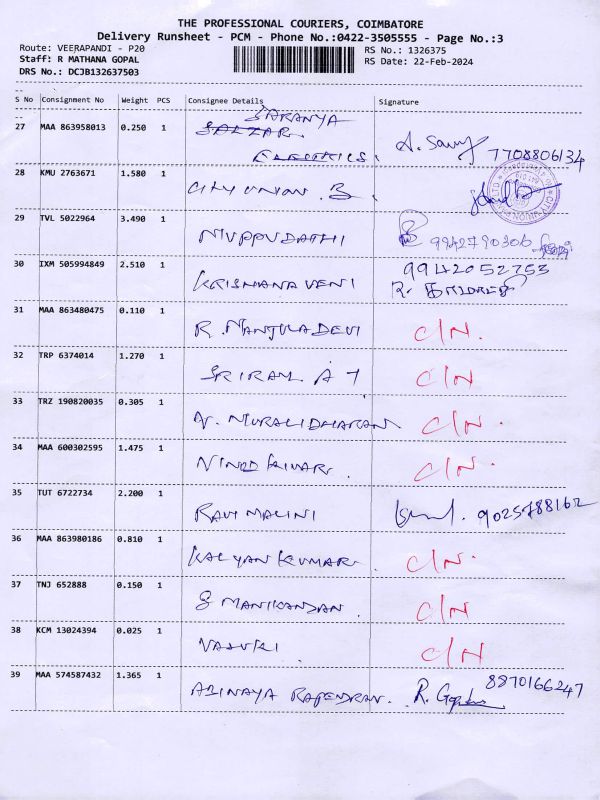 THE PROFESSIONAL COURIERS, COIMBATORE
Delivery Runsheet - PCM - Phone No.:0422-3505555 - Page No.:3
Route: VEERAPANDI - P20
RS No.: 1326375
Staff: R MATHANA GOPAL
RS Date: 22-Feb-2024
DRS No.: DCJB132637503
S No Consignment No Weight PCS Consignee Details Signature
SARANYA
27 MAA 863958013 0.250 1 7708806134
28 KMU 2763671 1.580 1 CITY UNION B.
29 TVL 5022964 3.490 1 MUPPUDATHI 9942790306
30 IXM 505994849 2.510 1 KRISHANAVENI 9942052753
31 MAA 863480475 0.110 1 R. MANJULADEVI C/N.
32 TRP 6374014 1.270 1 SRIRAM. A T C/N
33 TRZ 190820035 0.305 1 MURALIDHARAN C/N.
34 MAA 600302595 1.475 1 C/N.
35 TUT 6722734 2.200 1 RAVI MALINI 9025788162
36 MAA 863980186 0.810 1 KALYAN KUMAR. C/N.
37 TNJ 652888 0.150 1 S MANIKANDAN. C/N
38 KCM 13024394 0.025 1 VASUKI. C/N
39 MAA 574587432 1.365 1 ABINAYA RAJENDRAN. 8870166247